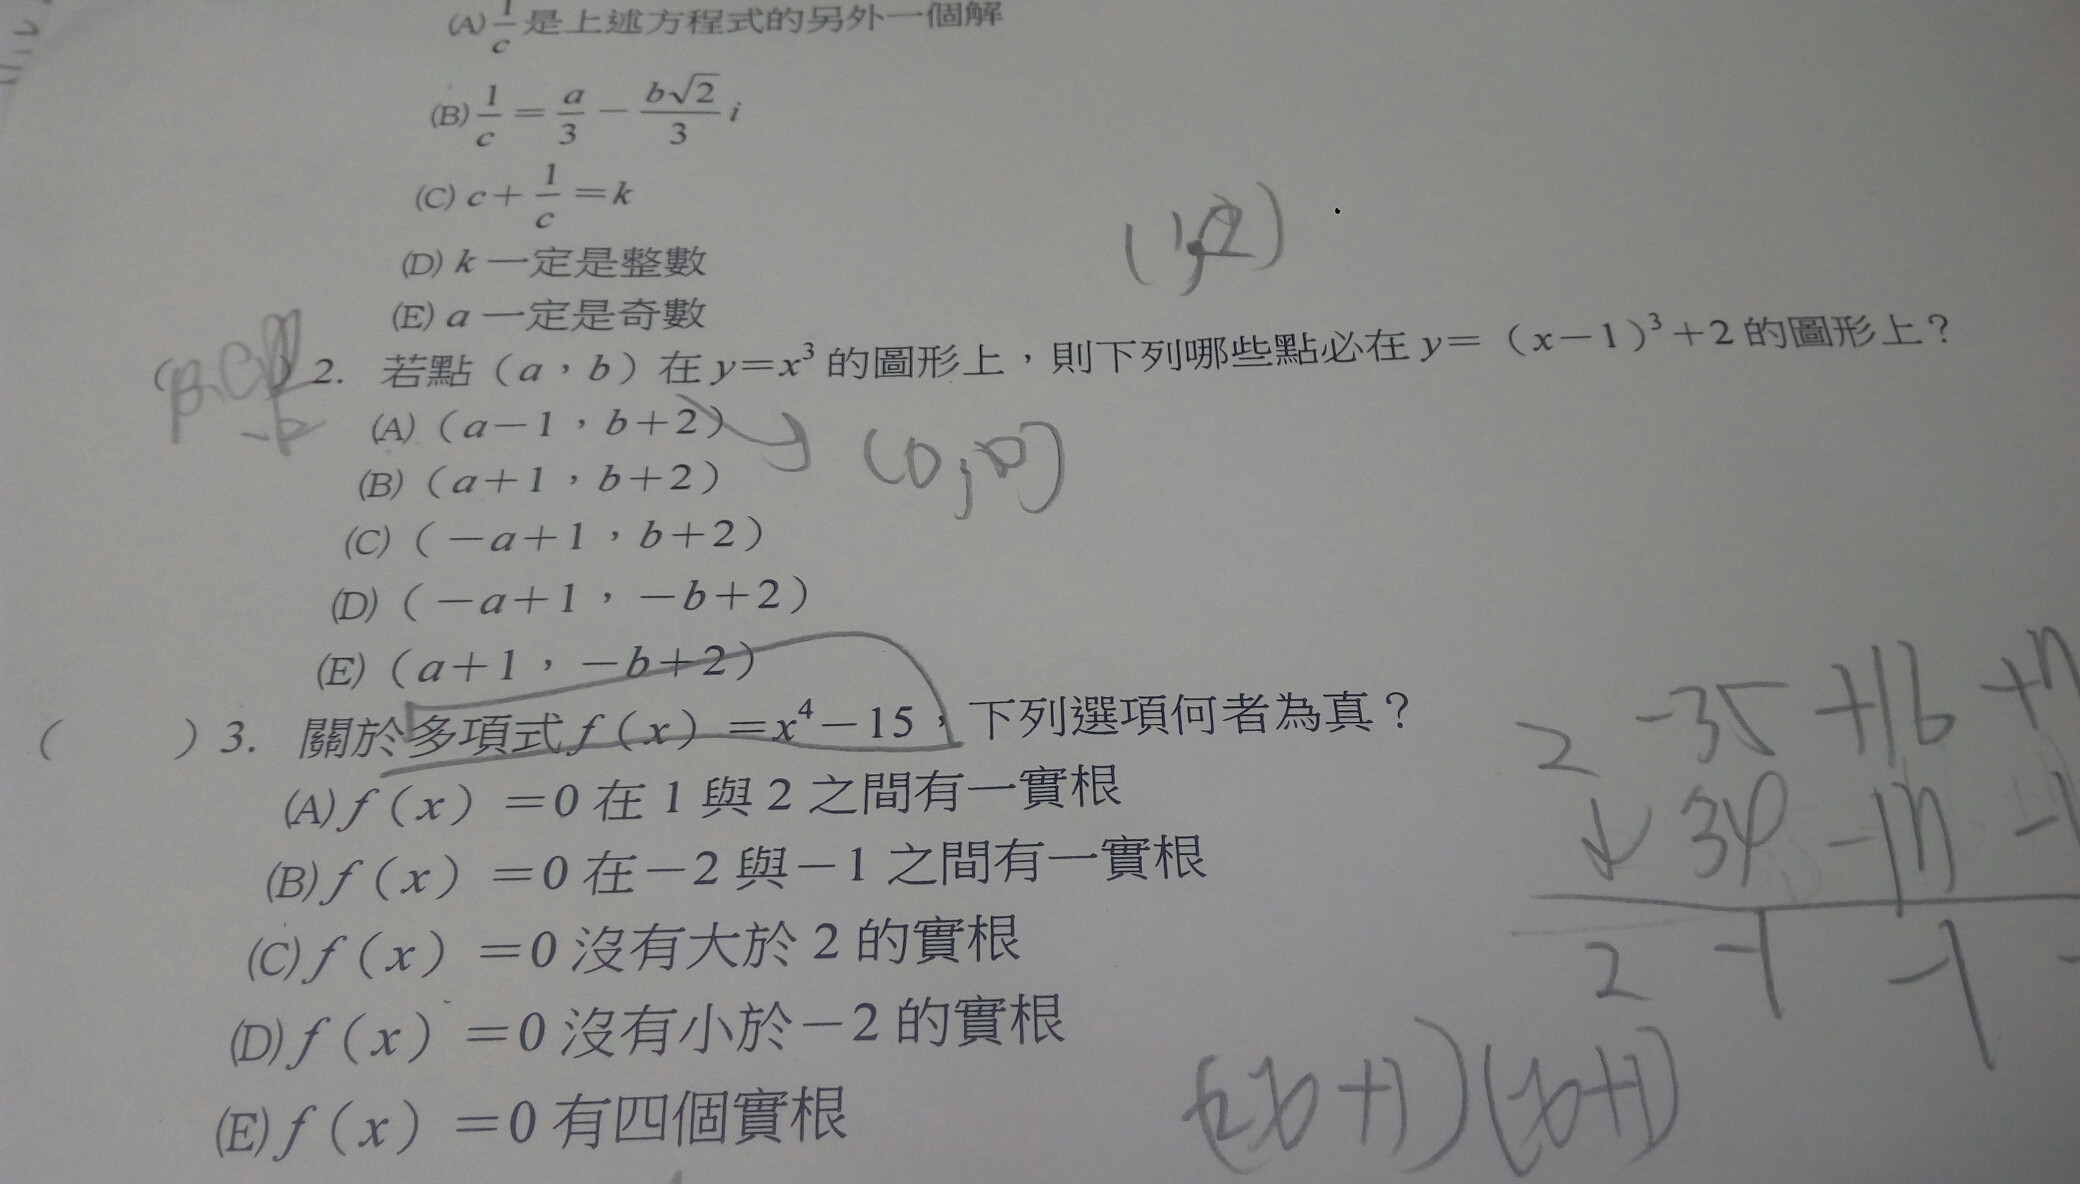 (A) 1/c 是上述方程式的另外一個解
(B) 1/c = a/3 - b√2/3 i
(C) c + 1/c = k
(D) k 一定是整數
(1,2)
(E) a 一定是奇數
2. 若點（a，b）在 y=x³ 的圖形上，則下列哪些點必在 y=（x-1）³+2 的圖形上？
(A)（a-1，b+2）
(0,0)
(B)（a+1，b+2）
(C)（-a+1，b+2）
(D)（-a+1，-b+2）
(E)（a+1，-b+2）
（ ）3. 關於多項式 f（x）=x⁴-15，下列選項何者為真？
(A) f（x）=0 在 1 與 2 之間有一實根
(B) f（x）=0 在 -2 與 -1 之間有一實根
(C) f（x）=0 沒有大於 2 的實根
(D) f（x）=0 沒有小於 -2 的實根
(E) f（x）=0 有四個實根
2 -35 +16
↓ 34 -17
2 -1 -1